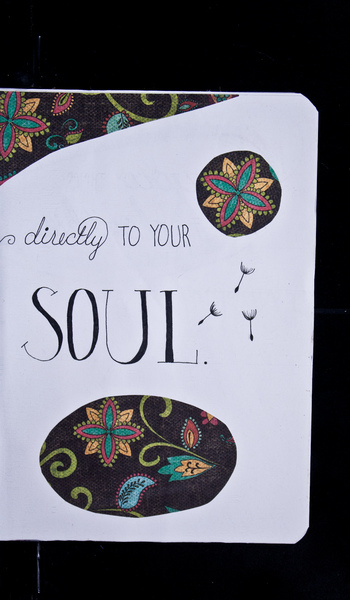 directly TO YOUR
SOUL.